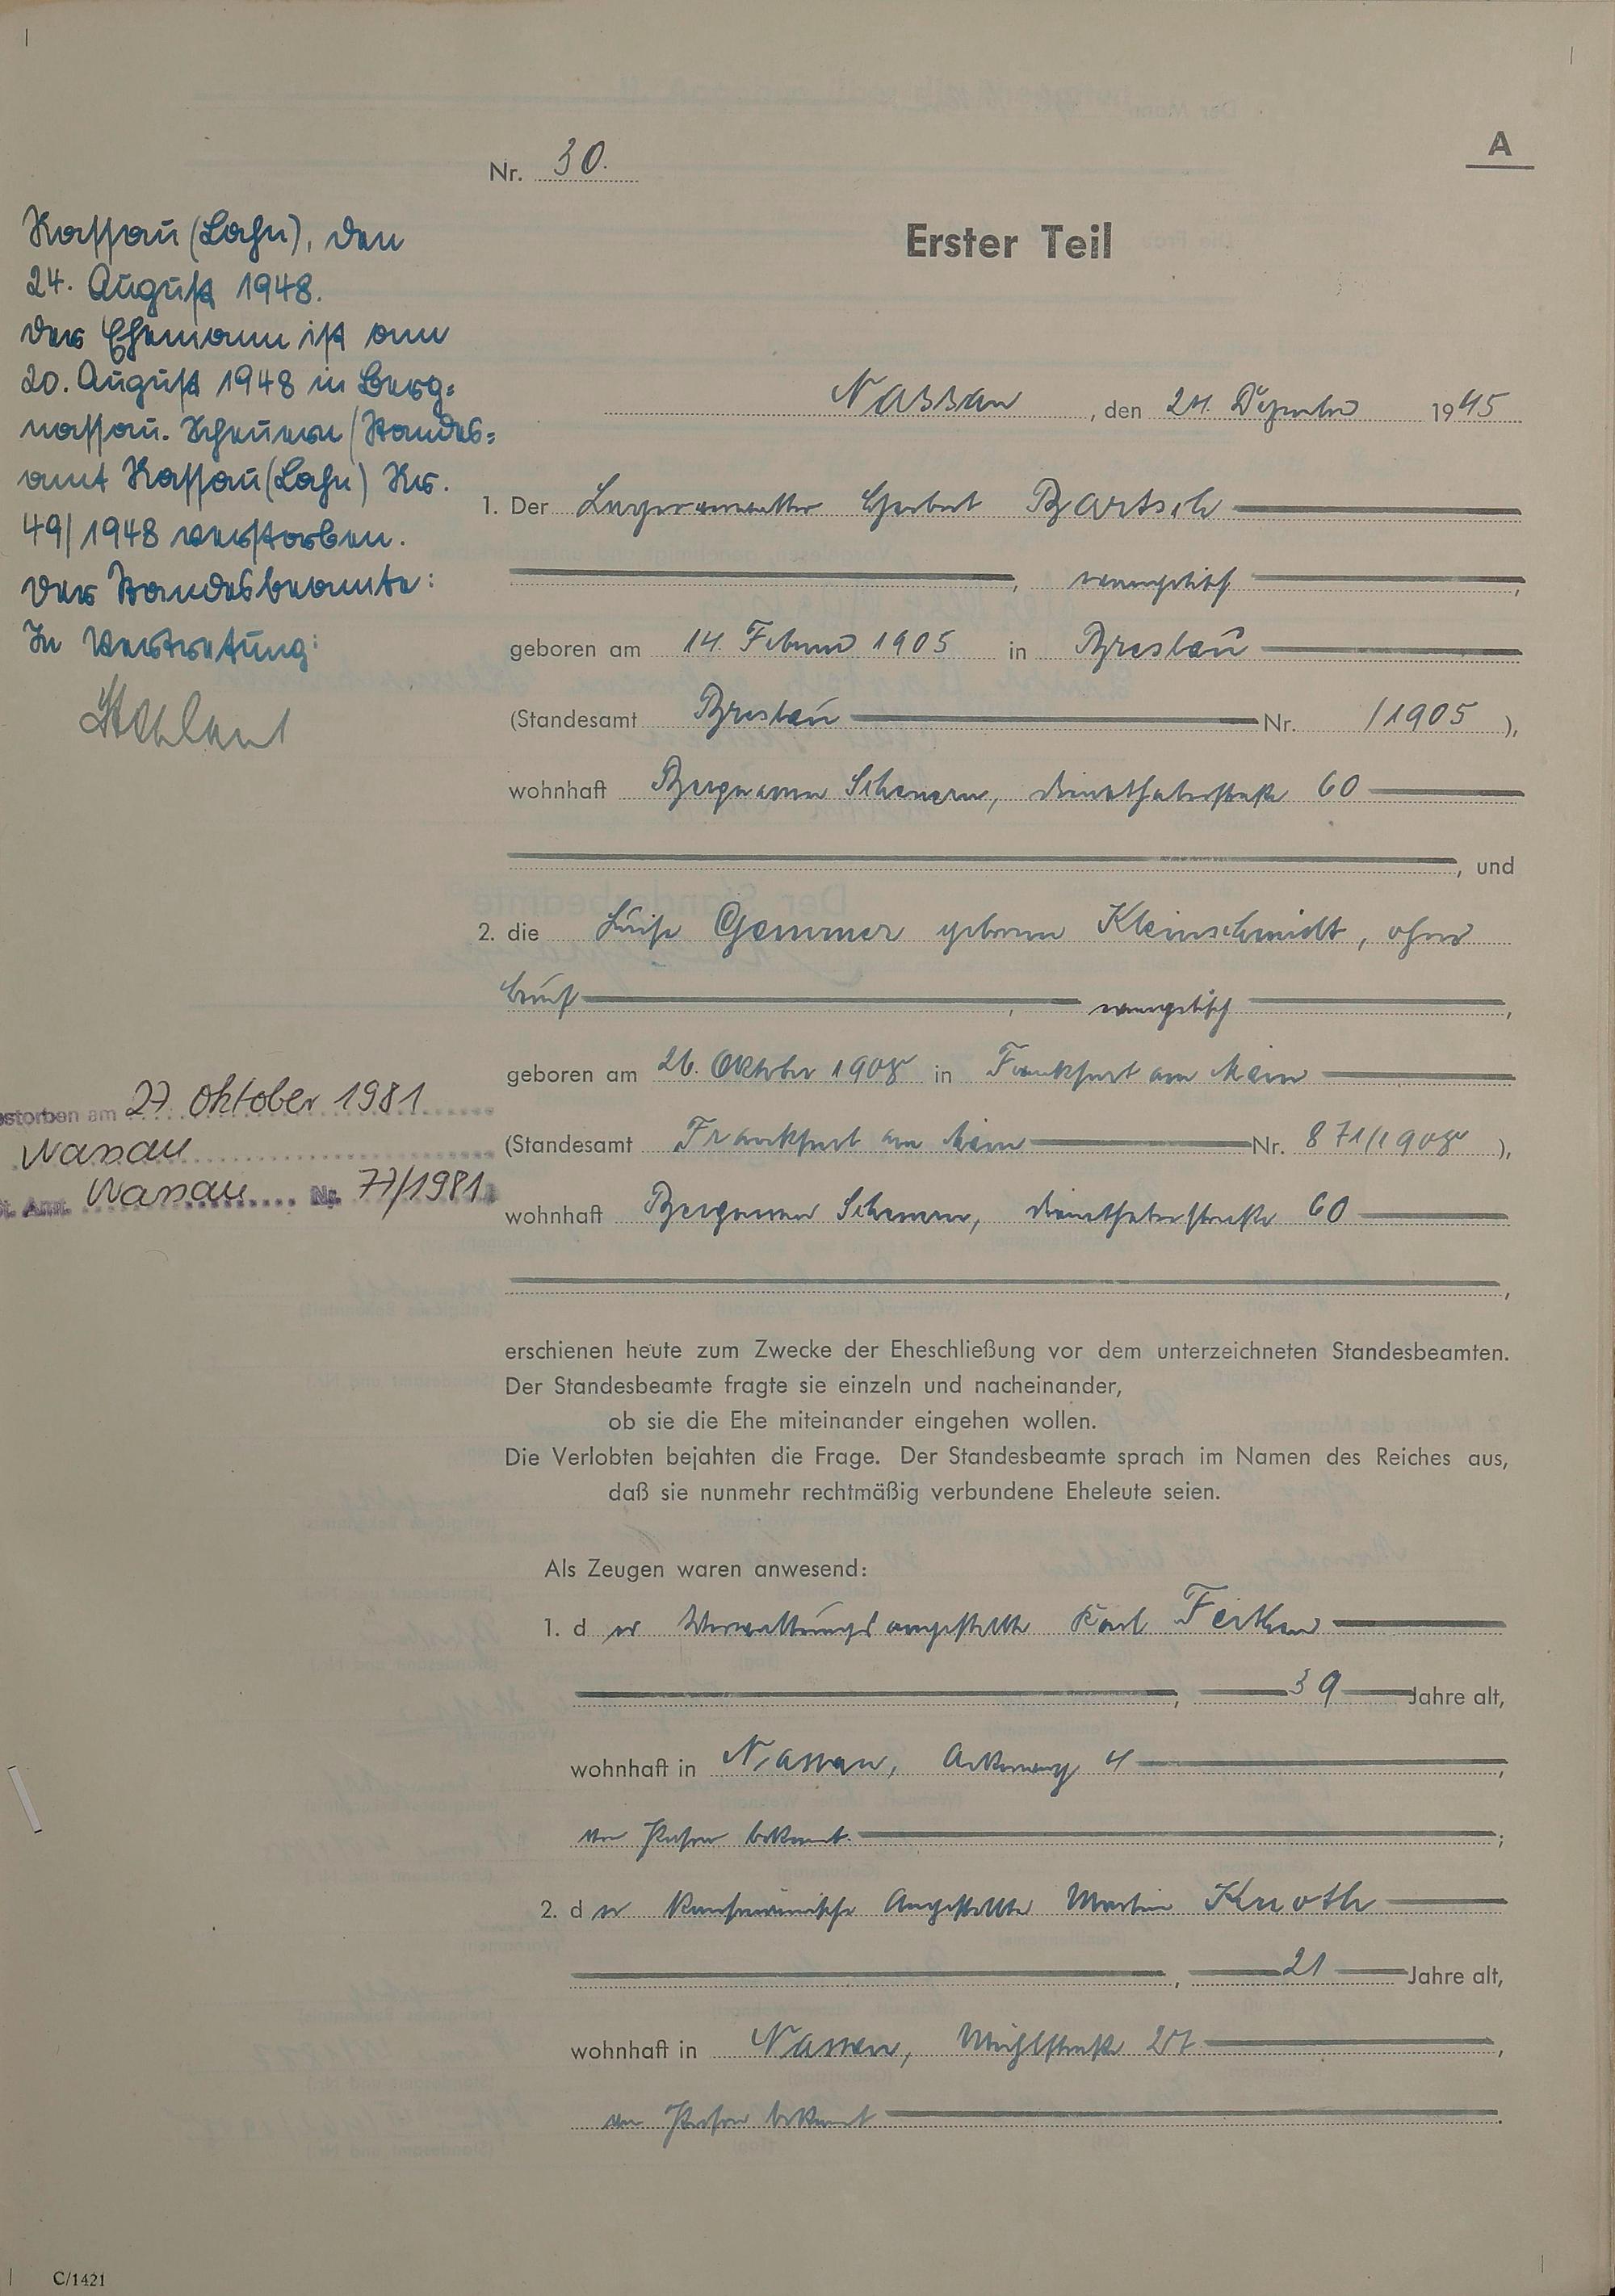 A
Nr. 30.
Erster Teil
Nassau (Lahn), den
24. August 1948.
Der Ehemann ist am
20. August 1948 in Berg=
nassau. Scheuern (Standes=
amt Nassau (Lahn) Nr.
49/1948 verstorben.
Der Standesbeamte:
In Vertretung:
Nassau, den 24. Dezember 1945
1. Der Lagerverwalter Herbert Bartsch
, evangelisch,
geboren am 14. Februar 1905 in Breslau
(Standesamt Breslau Nr. /1905),
wohnhaft Bergnassau Scheuern, Dienethalerstraße 60
, und
2. die Luise Gemmer geborene Kleinschmidt, ohne
Beruf, evangelisch,
geboren am 26. Oktober 1908 in Frankfurt am Main
(Standesamt Frankfurt am Main Nr. 871/1908),
wohnhaft Bergnassau Scheuern, Dienethalerstraße 60
,
estorben am 27. Oktober 1981
Nassau
t. Amt. Nassau Nr. 77/1981
erschienen heute zum Zwecke der Eheschließung vor dem unterzeichneten Standesbeamten.
Der Standesbeamte fragte sie einzeln und nacheinander,
ob sie die Ehe miteinander eingehen wollen.
Die Verlobten bejahten die Frage. Der Standesbeamte sprach im Namen des Reiches aus,
daß sie nunmehr rechtmäßig verbundene Eheleute seien.
Als Zeugen waren anwesend:
1. der Verwaltungsangestellte Karl
, 39 Jahre alt,
wohnhaft in Nassau, 4,
von Person bekannt.;
2. der kaufmännische Angestellte Martin Knoth
, 21 Jahre alt,
wohnhaft in Nassau, Mühlstraße
von Person bekannt.
C/1421